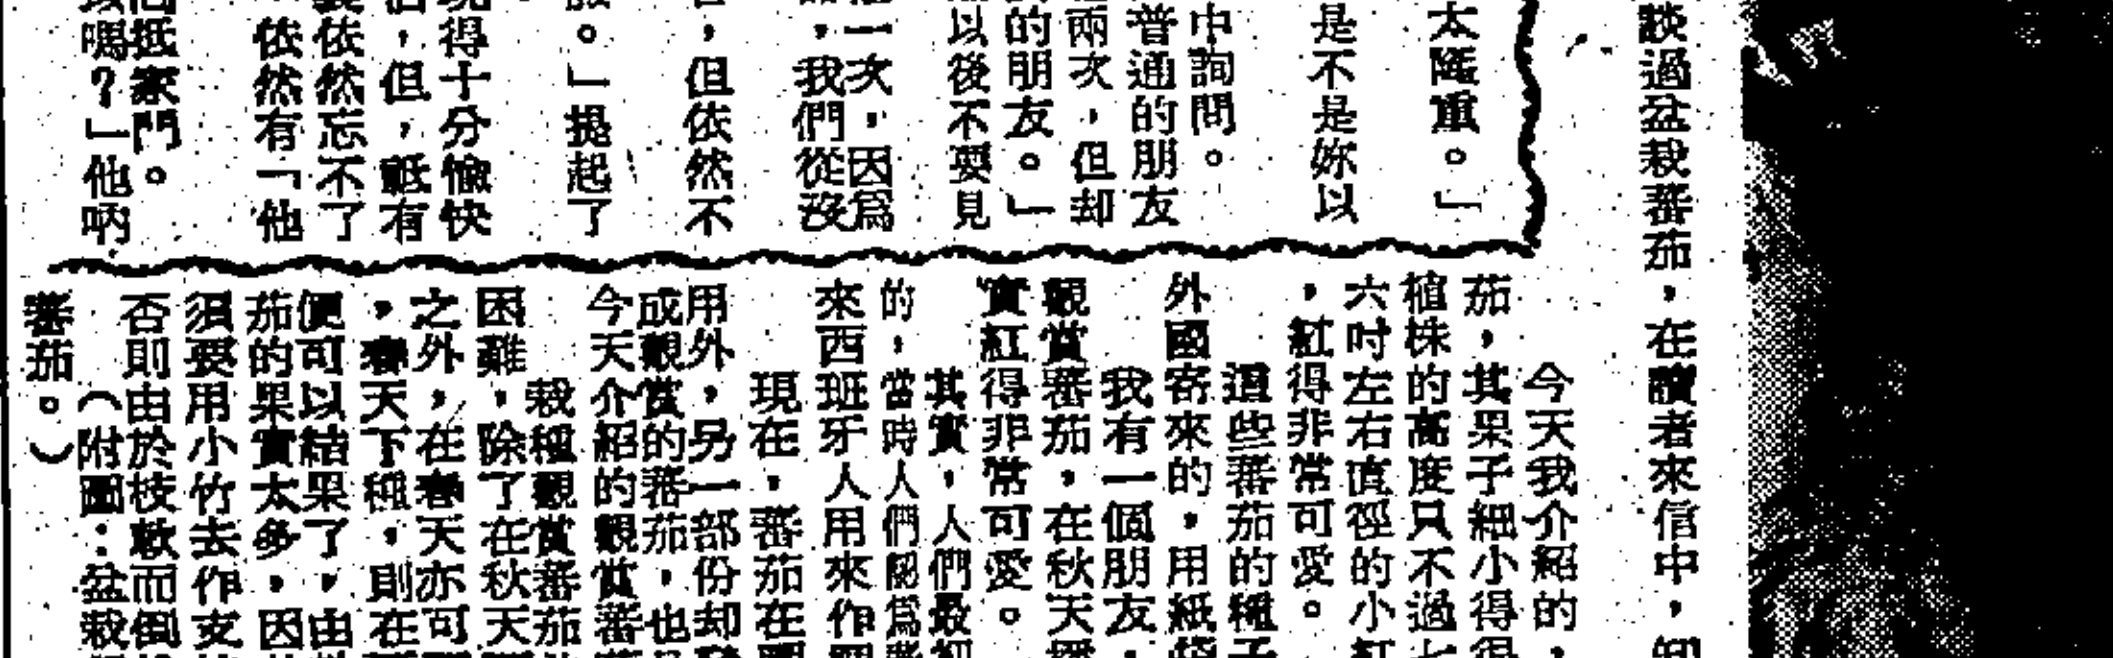 談過盆栽蕃茄，在讀者來信中，
太隆重。」
是不是妳以
中詢問。
普通的朋友
兩次，但却
的朋友。」
以後不要見
一次，因爲
，我們從沒
，但依然不
。」提起了
得十分愉快
，但，祗有
依然忘不了
依然有「他
抵家門。
嗎？」他吶
今天我介紹的，
茄，其果子細小得
植株的高度只不過七
六吋左右直徑的小紅
，紅得非常可愛。
這些蕃茄的種子
外國寄來的，用紙
我有一個朋友，
觀賞蕃茄，在秋天
實紅得非常可愛。
其實，人們最初
的，當時人們認爲
來西班牙人用來作
現在，蕃茄在
用外，另一部份却
成觀賞的蕃茄，也
今天介紹的觀賞蕃
栽種觀賞蕃茄
困難，除了在秋天
之外，在春天亦可
，春天下種，則在
便可以結果了，由
茄的果實太多，因
須要用小竹去作支
否則由於枝軟而倒
（附圖：盆栽
蕃茄。）